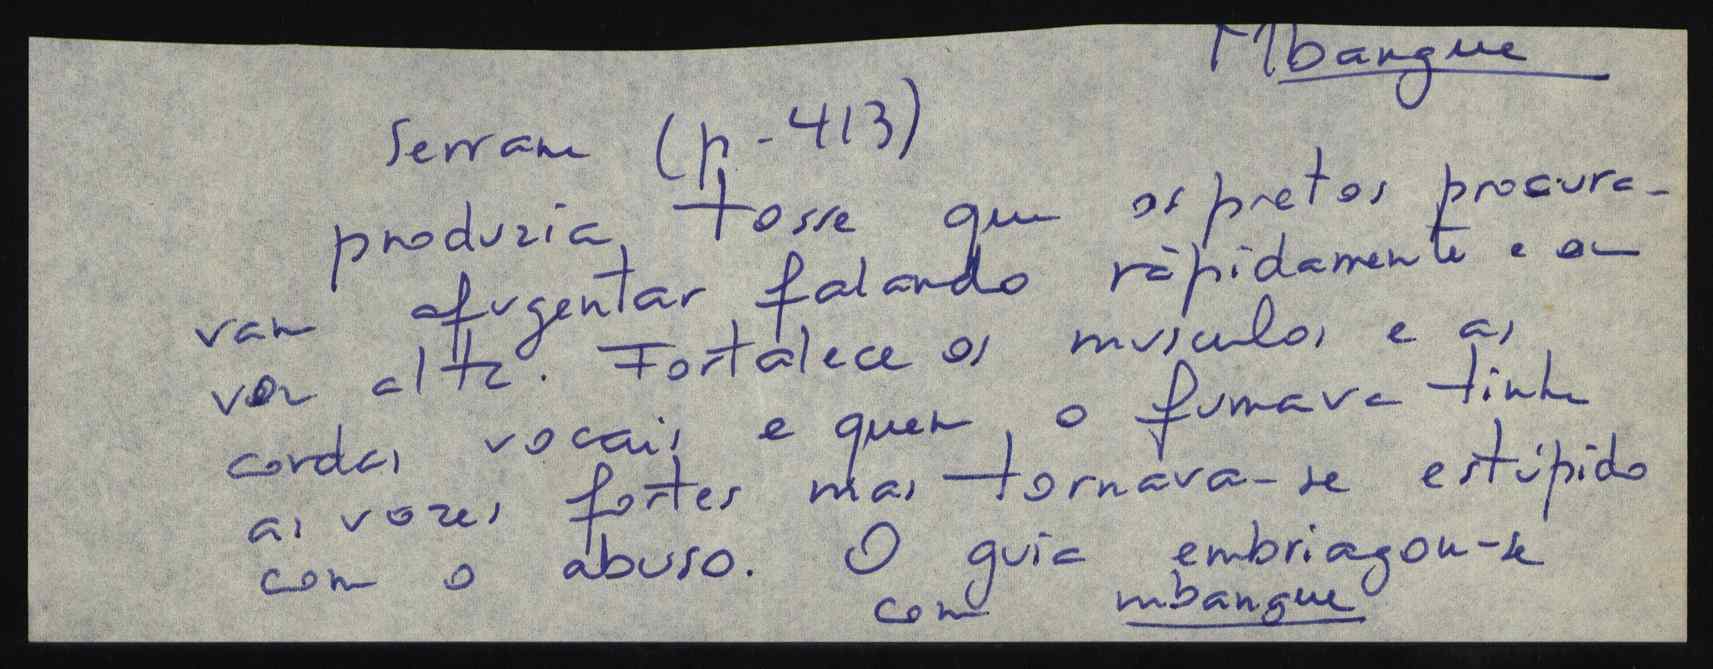 Mbangue
Serrano (p-413)
produzia tosse que os pretos procura-
vam afugentar falando ràpidamente e em
voz alta. Fortalece os musculos e as
cordas vocais e quem o fumava tinha
as vozes fortes mas tornava-se estúpido
com o abuso. O guia embriagou-se
com mbangue